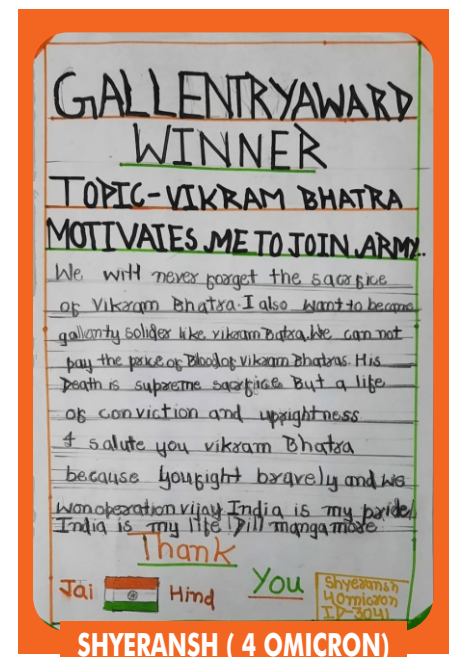 GALLENTRYAWARD
WINNER
TOPIC-VIKRAM BHATRA
MOTIVATES ME TO JOIN ARMY..
We will never forget the sacrfice
of Vikram Bhatra. I also want to become
gallanty solider like vikram Batra. We can not
pay the price of Blood of vikram Bhatras. His
Death is supreme sacrfice But a life
of conviction and uprightness
I salute you vikram Bhatra
because you fight bravely and we
won operation vijay India is my pride!
India is my life! Dill manga more
Thank
You
Jai Hind
Shyeransh
4 omicron
ID-3041
SHYERANSH ( 4 OMICRON)